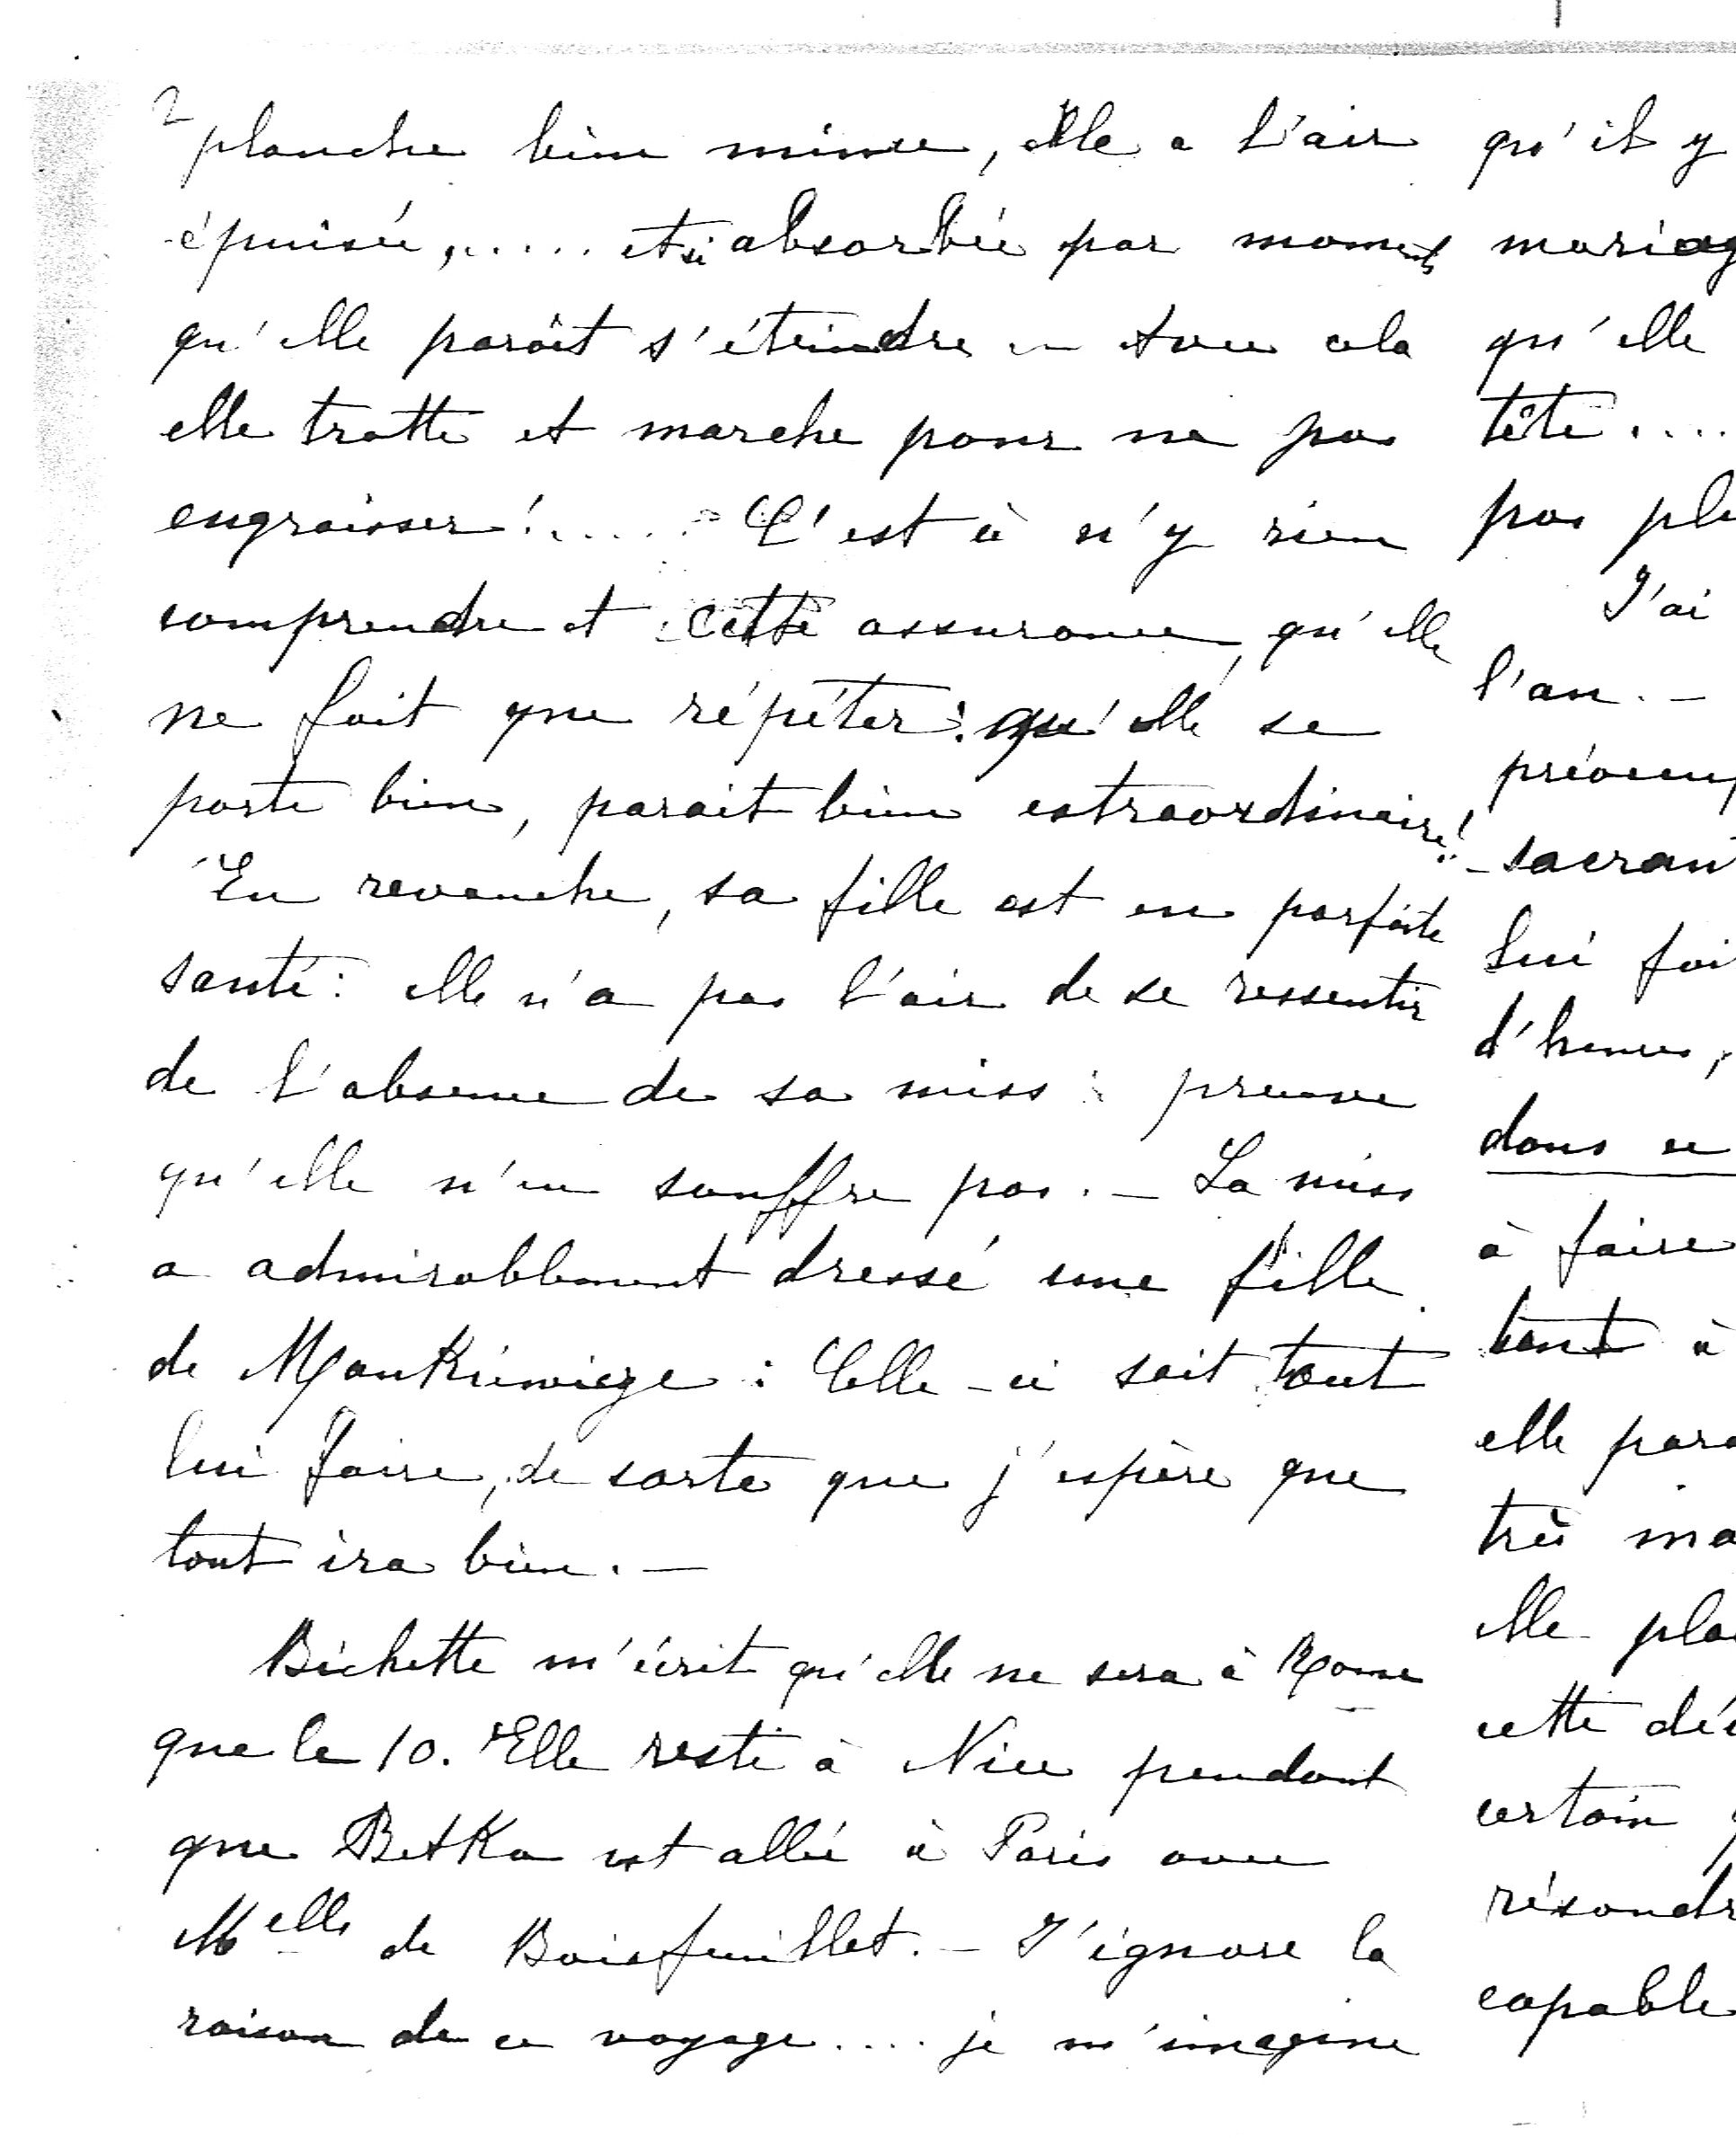 2
planche bien mince, elle a l'air
épuisée,..... et si absorbée par moments
qu'elle paroît s'éteindre — Avec cela
elle trotte et marche pour ne pas
engraisser!..... C'est à n'y rien
comprendre et cette assurance, qu'elle
ne fait que répéter: qu'elle se
porte bien, parait bien extraordinaire!..
En revanche, sa fille est en parfaite
santé: elle n'a pas l'air de se ressentir
de l'absence de sa miss: preuve
qu'elle n'en souffre pas. — La miss
a admirablement dressé une fille
de Mankiewicze: Celle-ci sait tout
lui faire, de sorte que j'espère que
tout ira bien. —
Bichette m'écrit qu'elle ne sera à Rome
que le 10. Elle reste à Nice pendant
que Betka est allée à Paris avec
Melle de Boisfeuillet. — J'ignore la
raison de ce voyage.... je m'imagine
qu'il y
mariag
qu'elle
tête....
pas plu
J'ai
l'an. —
préoccup
sacran
lui fai
d'heures,
dans ce
à faire
tant à
elle para
très ma
elle pla
cette dé
certain
résoudr
capable